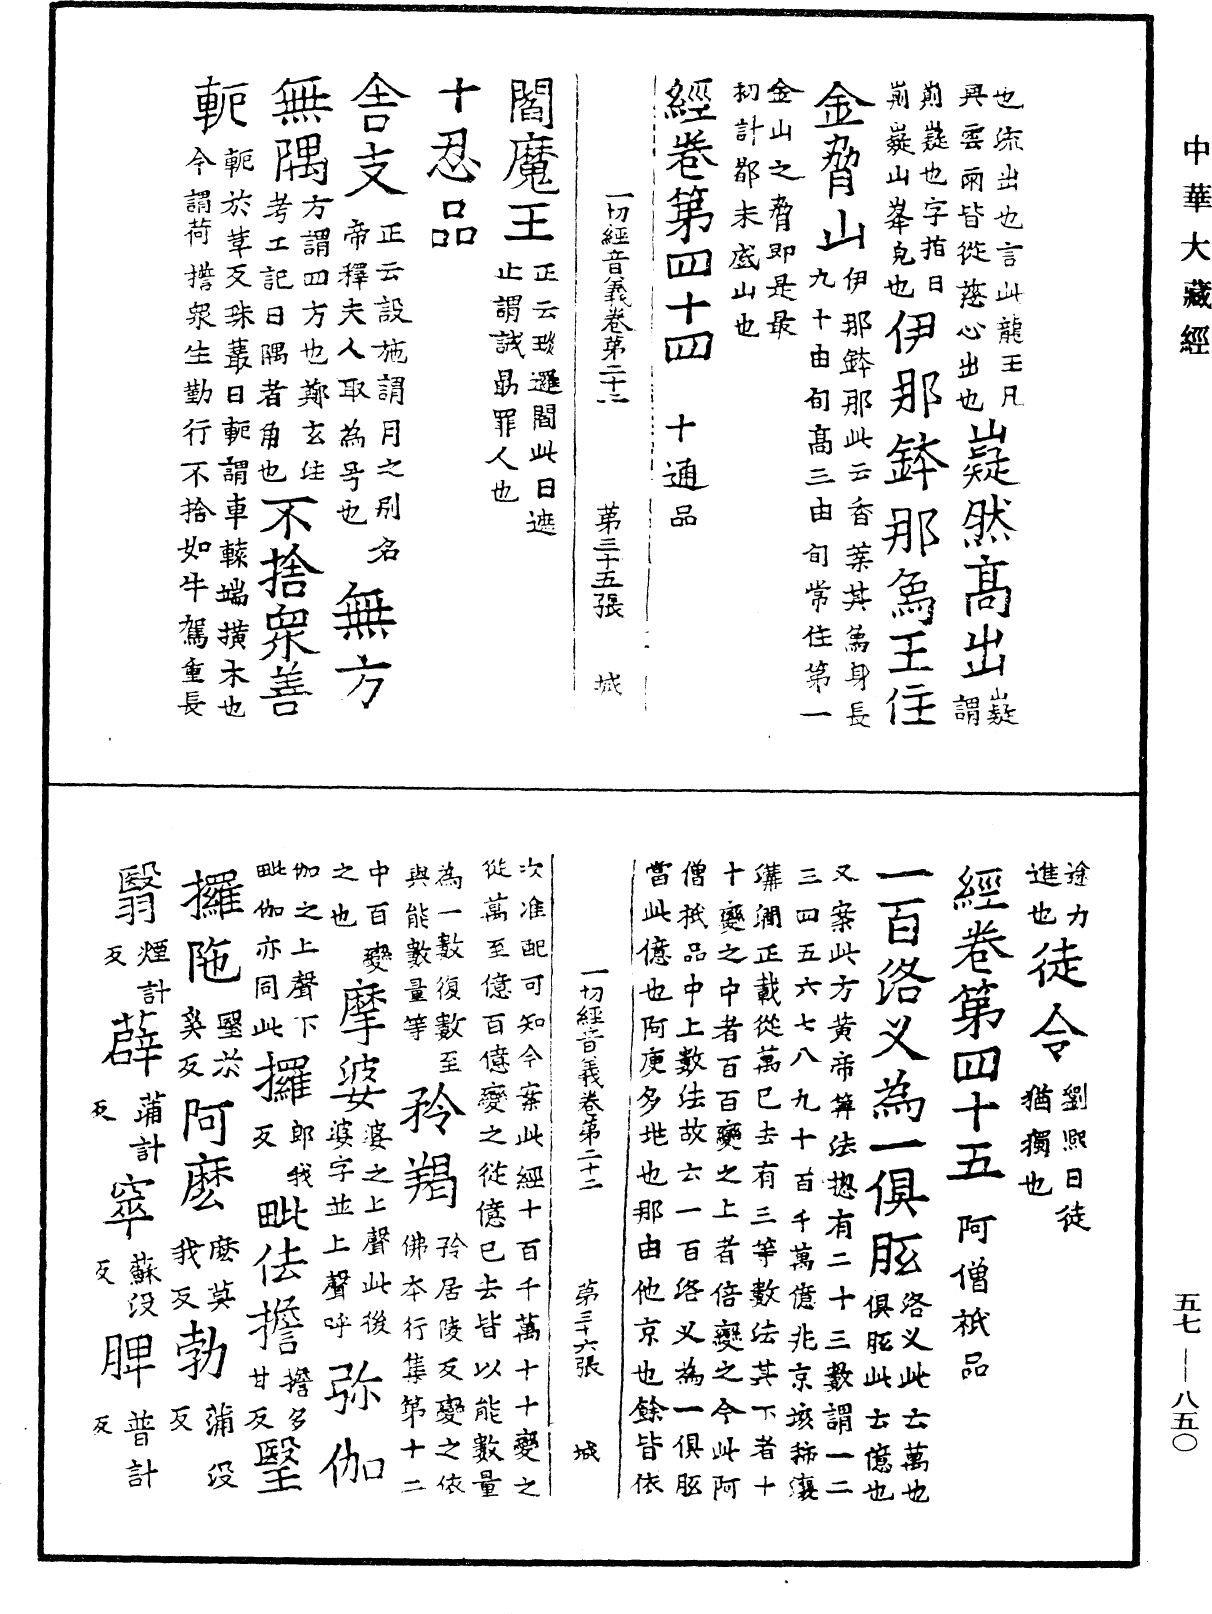 中華大藏經
也流出也言此龍王凡
興雲雨皆從慈心出也
嶷然高出
嶷謂
崱嶷也字指曰
崱嶷山峯皃也
伊那鉢那為王住
金脅山
伊那鉢那此云香葉其為身長
九十由旬高三由旬常住第一
金山之脅即是最
初計都末底山也
經卷第四十四 十通品
一切經音義卷第二十二 第三十五張 城
閻魔王
正云琰邏閻此曰遮
止謂誡勗罪人也
十忍品
舍支
正云設施謂月之別名
帝釋夫人取為号也
無方
無隅
方謂四方也鄭玄注
考工記曰隅者角也
不捨衆善
軛
軛於革反珠叢曰軛謂車轅端橫木也
今謂荷擔衆生勤行不捨如牛駕重長
途力
進也
徒令
劉熙曰徒
猶獨也
經卷第四十五 阿僧祇品
一百洛叉為一俱胝
洛叉此云萬也
俱胝此云億也
又案此方黃帝筭法揔有二十三數謂一二
三四五六七八九十百千萬億兆京垓秭壤
溝澗正載從萬已去有三等數法其下者十
十變之中者百百變之上者倍變之今此阿
僧祇品中上數法故云一百洛叉為一俱胝
當此億也阿庾多地也那由他京也餘皆依
一切經音義卷第二十二 第三十六張 城
次准配可知今案此經十百千萬十十變之
從萬至億百億變之從億已去皆以能數量
為一數復數至
與能數量等
矜羯
矜居陵反變之依
佛本行集第十二
中百變
之也
摩婆
婆之上聲此後
婆字並上聲呼
弥伽
伽之上聲下
毗伽亦同此
攞
郎我
反
毗佉擔
擔多
甘反
毉
攞陁
毉於
奚反
阿麽
麽莫
我反
勃
蒲没
反
翳
煙計
反
薜
蒲計
反
窣
蘇没
反
脾
普計
反
五七—八五〇